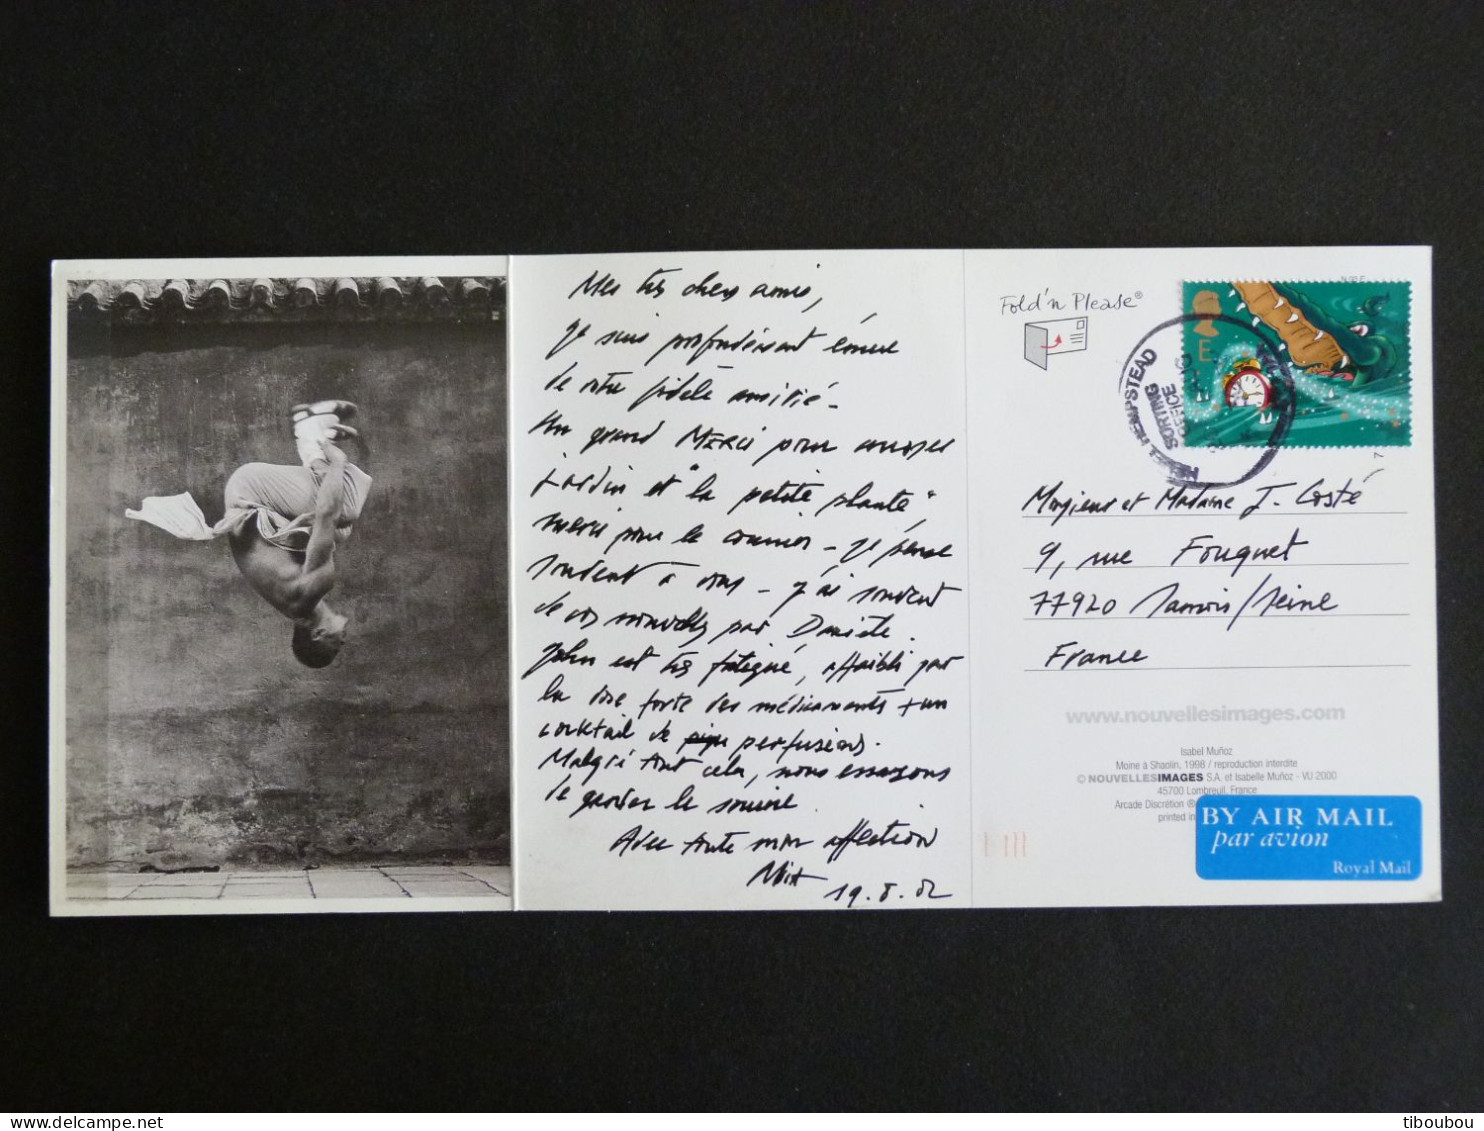 Mes très chers amis,
Je suis profondément émue
de votre fidèle amitié -
Un grand MERCI pour arroser
jardin et "la petite plante"
merci pour le courrier - Je pense
souvent à vous - J'ai souvent
de vos nouvelles par Danièle.
John est très fatigué, affaibli par
la dose forte des médicaments + un
cocktail de perfusions.
Malgré tout cela, nous essayons
de garder le sourire.
Avec toute mon affection
19.8.02
Fold'n Please®
E
HEMPSTEAD
SORTING
OFFICE
Monsieur et Madame J. Costé
9, rue Fouquet
77920 Samois/Seine
France
www.nouvellesimages.com
Isabel Muñoz
Moine à Shaolin, 1998 / reproduction interdite
© NOUVELLESIMAGES S.A. et Isabelle Muñoz - VU 2000
45700 Lombreuil, France
Arcade Discrétion ®
printed in
BY AIR MAIL
par avion
Royal Mail
tiboubou